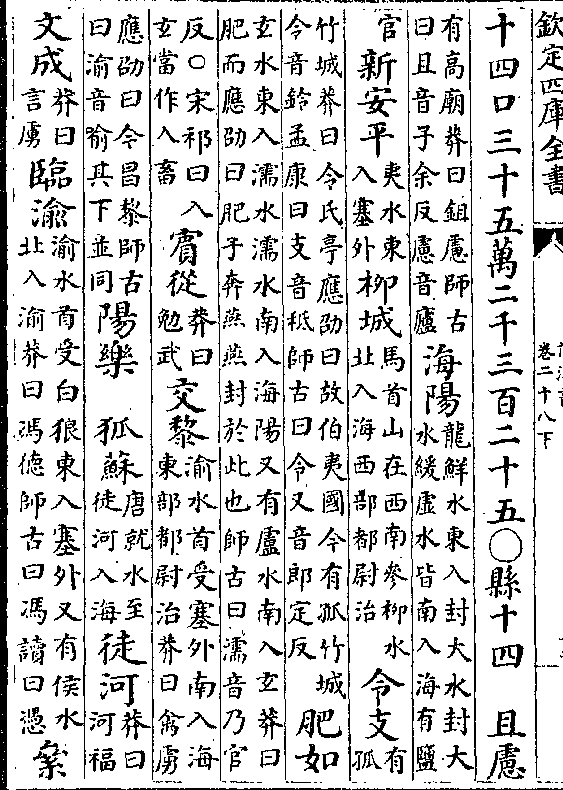 欽定四庫全書
卷二十八下
十四口三十五萬二千三百二十五〇縣十四 且慮
有高廟莽曰鉏慮師古曰且音子余反慮音廬海陽龍鮮水東入封大水封大水緩虛水皆南入海有鹽
官 新安平夷水東入塞外柳城馬首山在西南參柳水北入海西部都尉治 令支有孤
竹城莽曰令氏亭應劭曰故伯夷國今有孤竹城令音鈴孟康曰支音秪師古曰令又音郎定反肥如
玄水東入濡水濡水南入海陽又有盧水南入玄莽曰肥而應劭曰肥子奔燕燕封於此也師古曰濡音乃官
反〇宋祁曰入玄當作入畜 賓從莽曰勉武 交黎渝水首受塞外南入海東部都尉治莽曰禽虜
應劭曰今昌黎師古曰渝音喻其下並同陽樂 狐蘇唐就水至徒河入海徒河莽曰河福
文成莽曰言虜臨渝渝水首受白狼東入塞外又有侯水北入渝莽曰馮德師古曰馮讀曰憑 絫